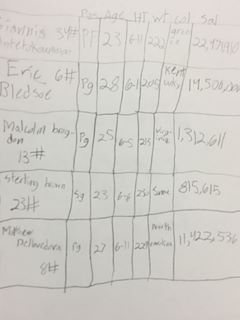 Pos Age HT, WT Col Sal
Giannis 34# PF 23 6-11 222 greece 22,471,910
Eric 6# Pg 28 6-1 205 Kentucky 14,500,000
Bledsoe
Malcolm brog- Pg 25 6-5 215 1,312,611
don
13#
Sterling brown Sg 23 6-6 815,615
23#
Pg 27 6-11 north 11,422,536
Dellavedova
8#